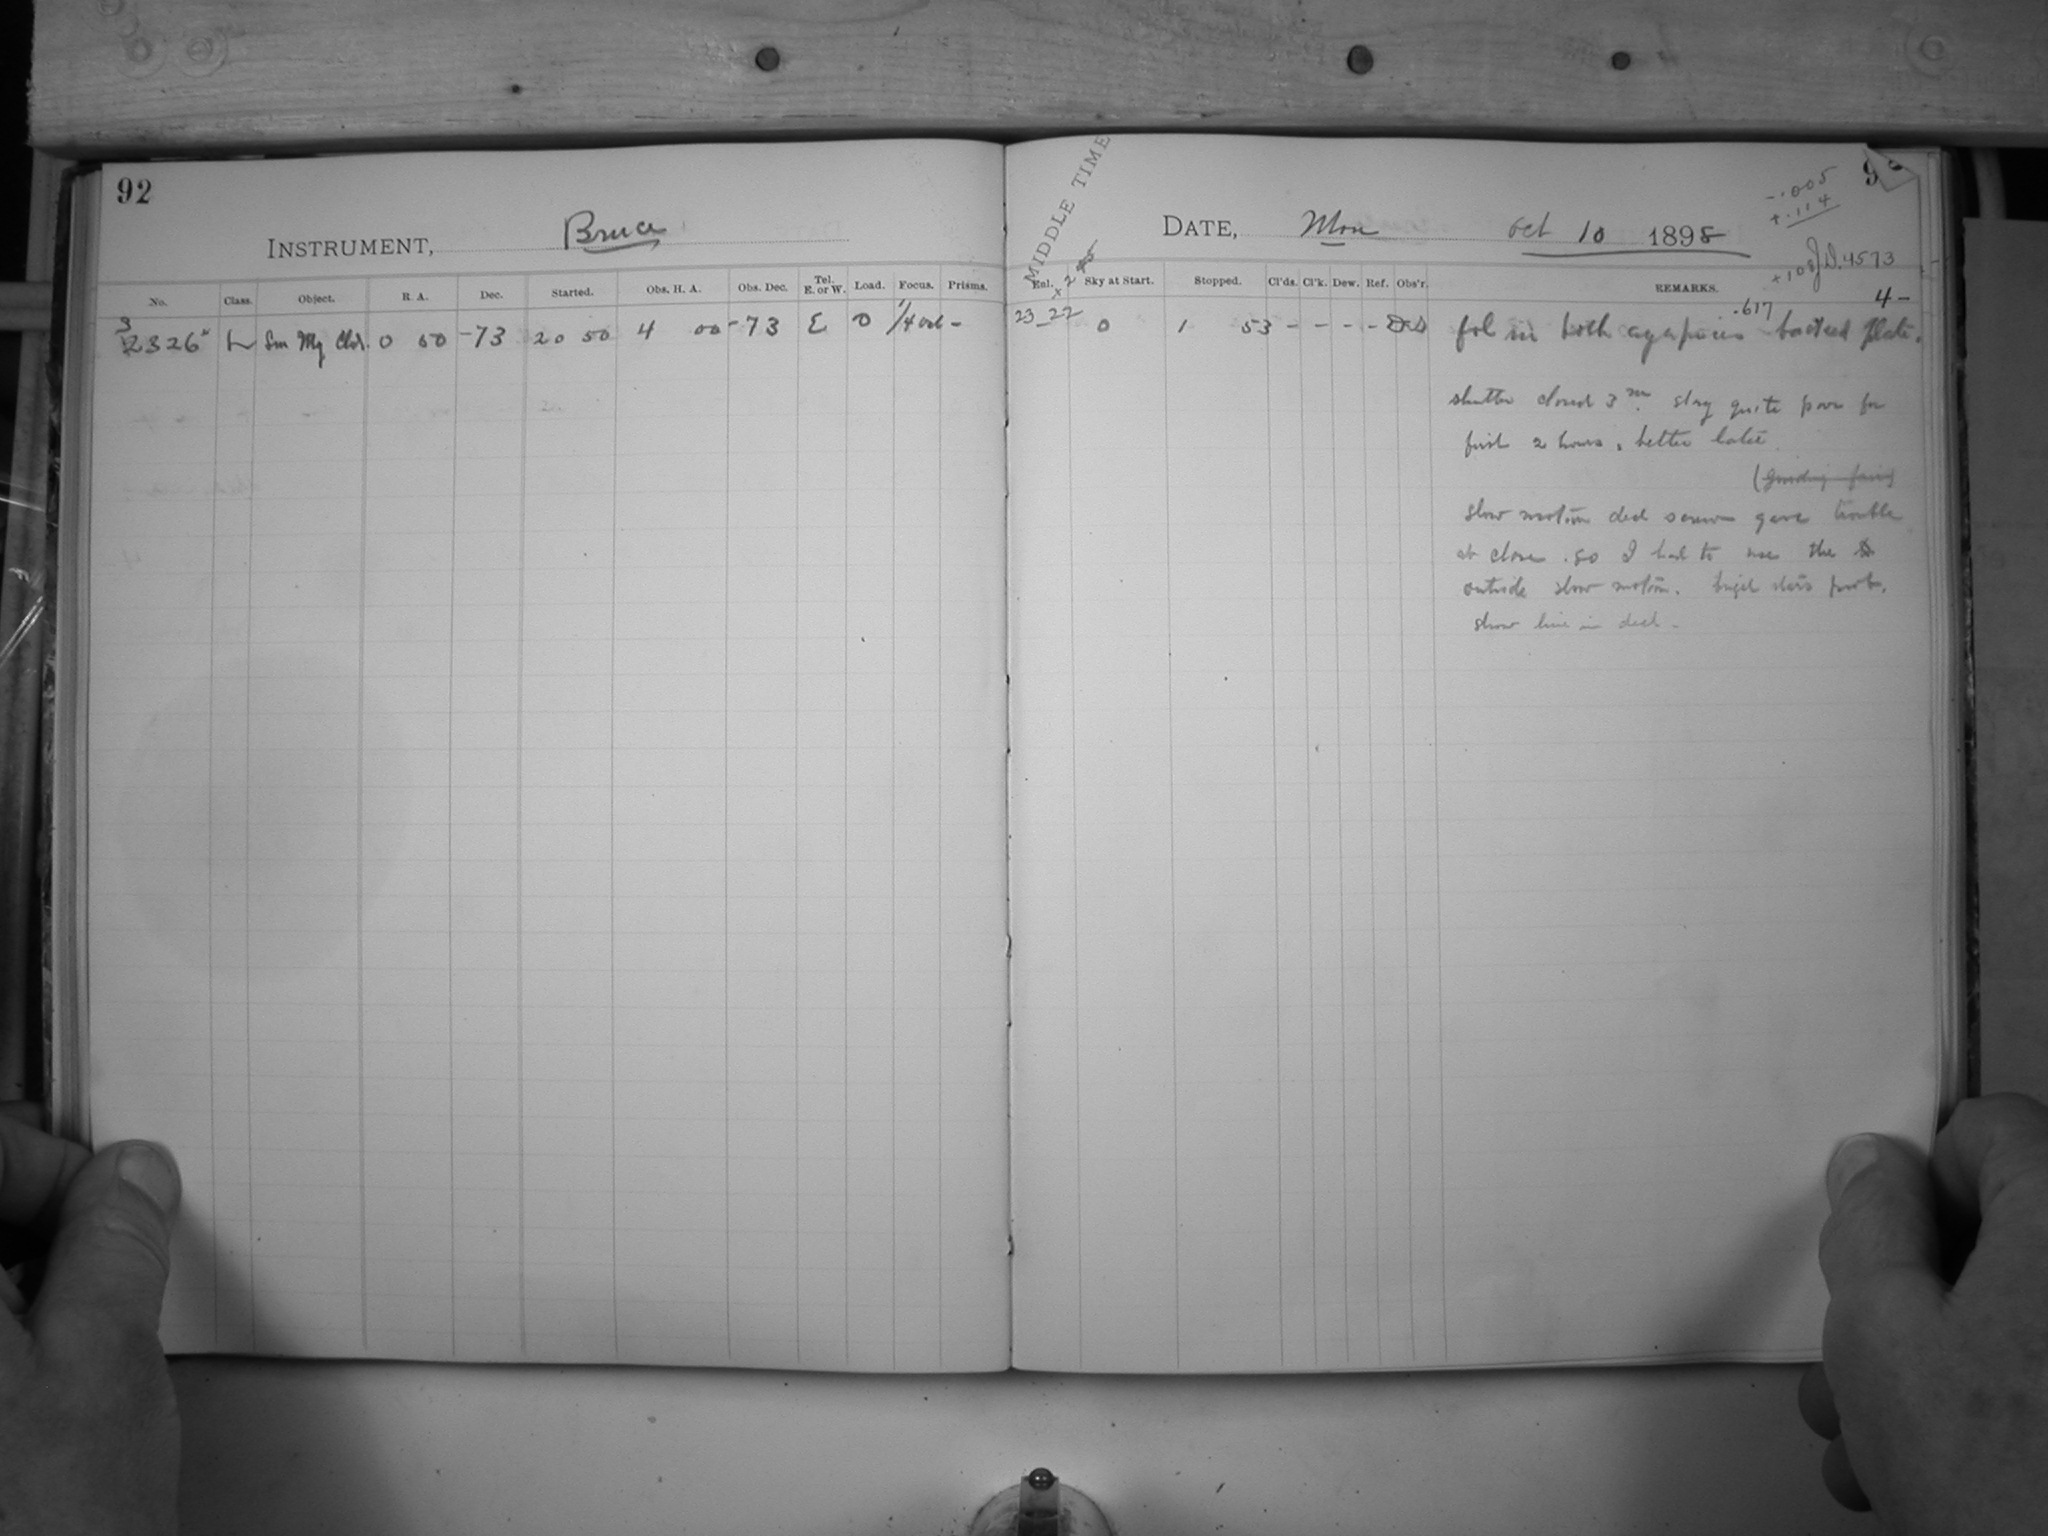 92
INSTRUMENT, Bruce
No. Class. Object. R. A. Dec. Started. Obs. H. A. Obs. Dec. Tel. E. or W. Load. Focus. Prisms.
3
2326 L Sm Mg Cld. 0 50 -73 20 50 4 00 -73 E 0 -
MIDDLE TIME
DATE, Mon Oct 10 1898
-.005
+.114
+108 J.D. 4573
Enl. Sky at Start. Stopped. Cl'ds. Cl'k. Dew. Ref. Obs'r. REMARKS.
.617 4-
23-22 0 1 53 - - - - fol in both backed plate.
shutter closed 3m. slay quite poor for
first 2 hours, better later
(guiding fair)
slow motion decl screw gave trouble
at close. so I had to use the
outside slow motion. bright stars prob.
show line in decl -